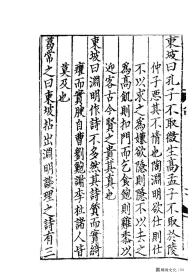 東坡曰孔子不取微生高孟子不取於陵
仲子惡其不情也陶淵明欲仕則仕
不以求之為嫌欲隱則隱不以去之
為高飢則扣門而乞食飽則雞黍以
迎客古今賢之貴其真也
東坡曰淵明作詩不多然其詩質而實綺
癯而實腴自曹劉鮑謝李杜諸人皆
莫及也
舊常之曰東坡拈出淵明談理之詩有三